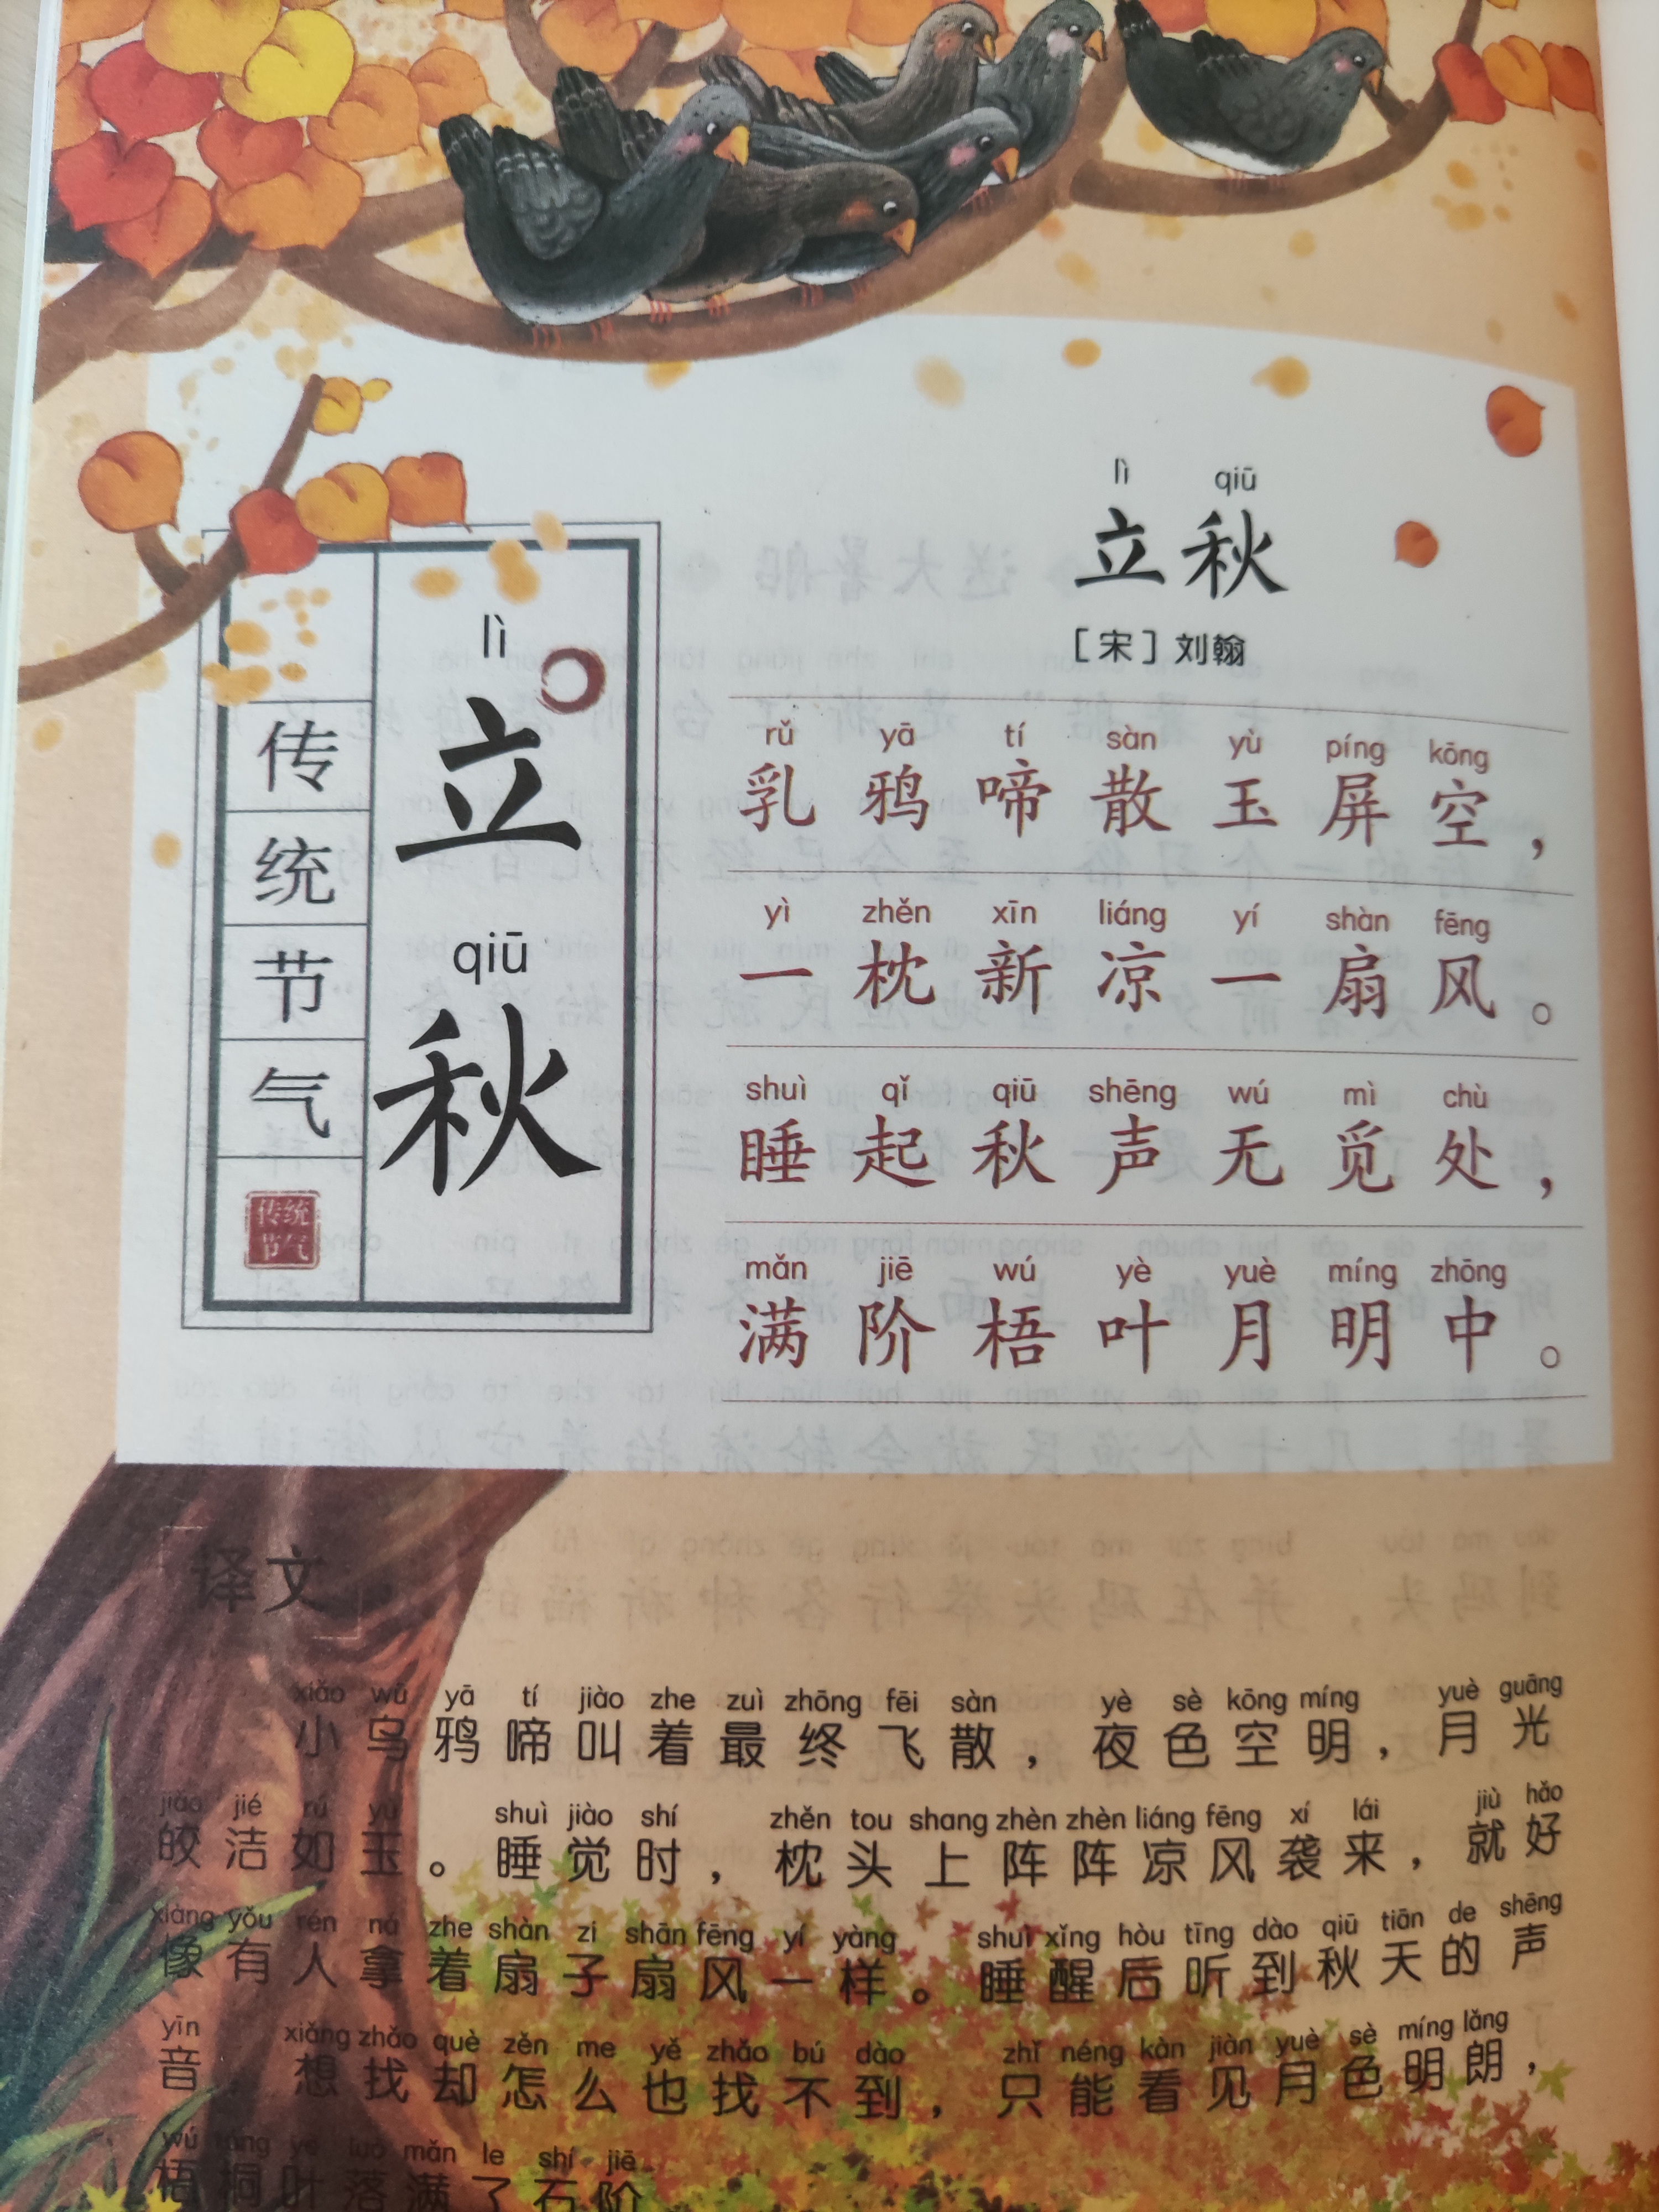 lì qiū
立秋
[宋]刘翰
传统节气
lì
立
qiū
秋
传统
节气
rǔ yā tí sàn yù píng kōng
乳鸦啼散玉屏空，
yì zhěn xīn liáng yí shàn fēng
一枕新凉一扇风。
shuì qǐ qiū shēng wú mì chù
睡起秋声无觅处，
mǎn jiē wú yè yuè míng zhōng
满阶梧叶月明中。
译文
xiǎo wū yā tí jiào zhe zuì zhōng fēi sàn yè sè kōng míng yuè guāng
小乌鸦啼叫着最终飞散，夜色空明，月光
jiǎo jié rú yù shuì jiào shí zhěn tou shang zhèn zhèn liáng fēng xí lái jiù hǎo
皎洁如玉。睡觉时，枕头上阵阵凉风袭来，就好
xiàng yǒu rén ná zhe shàn zi shān fēng yí yàng shuì xǐng hòu tīng dào qiū tiān de shēng
像有人拿着扇子扇风一样。睡醒后听到秋天的声
yīn xiǎng zhǎo què zěn me yě zhǎo bú dào zhǐ néng kàn jiàn yuè sè míng lǎng
音，想找却怎么也找不到，只能看见月色明朗，
wú tóng yè luò mǎn le shí jiē
梧桐叶落满了石阶